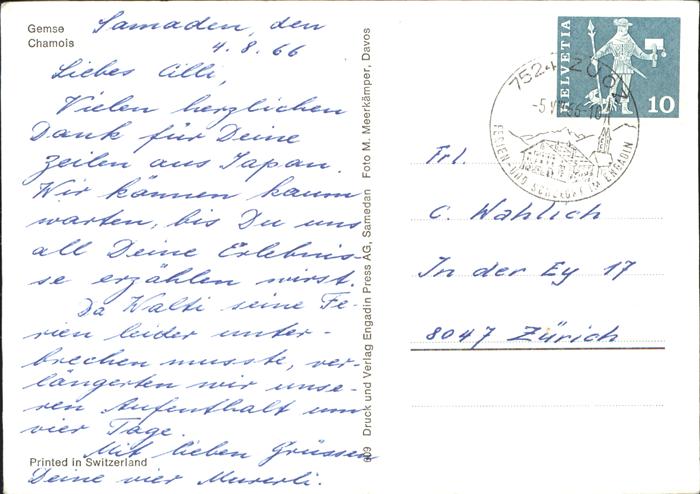 Gemse
Chamois
Samaden, den
4. 8. 66
Liebes Cilli,
Vielen herzlichen
Dank für Deine
Zeilen aus Japan.
Wir können kaum
warten, bis Du uns
all Deine Erlebnis-
se erzählen wirst.
Da Walti seine Fe-
rien leider unter-
brechen musste, ver-
längerten wir unse-
ren Aufenthalt um
vier Tage.
Mit lieben Grüssen
Deine vier Murerli.
Printed in Switzerland
609 Druck und Verlag Engadin Press AG, Samedan Foto M. Meerkämper, Davos
HELVETIA
10
7524 ZUOZ
FERIEN- UND SCHULORT IM ENGADIN
Frl.
C. Wahlich
In der Ey 17
8047 Zürich